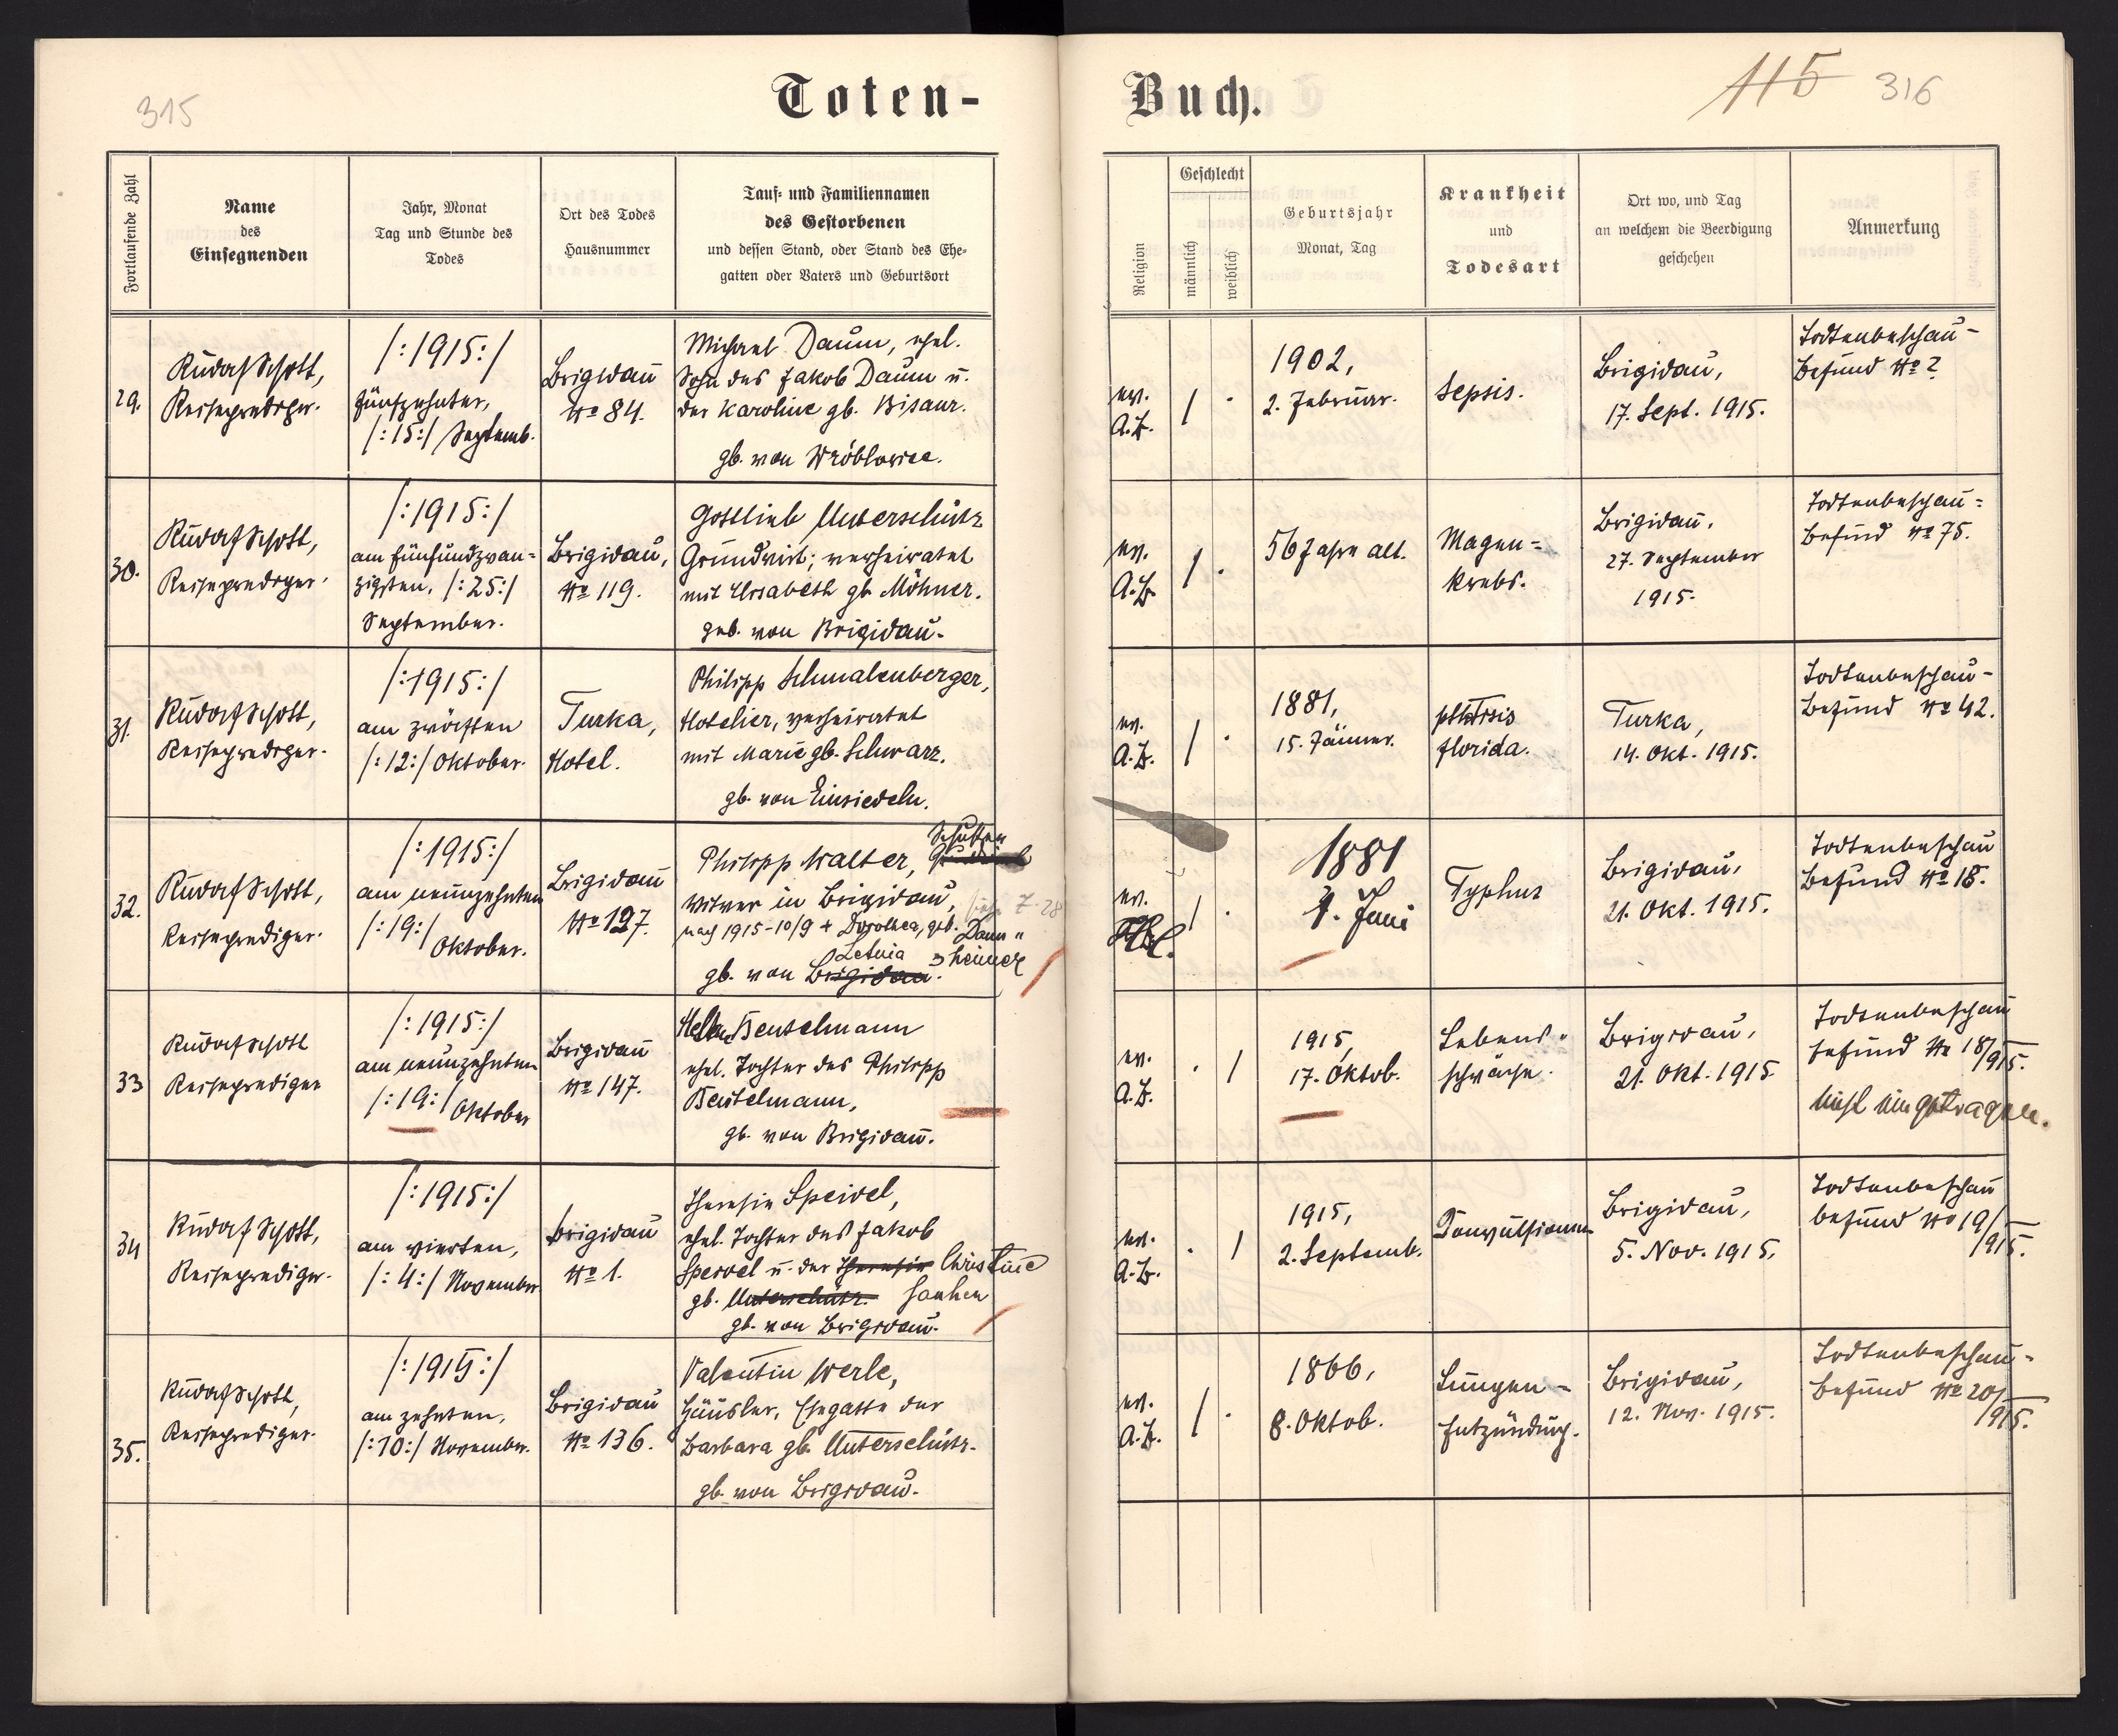 315
Toten-
Buch.
115 316
Fortlaufende Zahl
Name
des
Einsegnenden
Jahr, Monat
Tag und Stunde des
Todes
Ort des Todes
Hausnummer
Tauf- und Familiennamen
des Gestorbenen
und dessen Stand, oder Stand des Ehe-
gatten oder Vaters und Geburtsort
Religion
Geschlecht
männlich
weiblich
Geburtsjahr
Monat, Tag
Krankheit
und
Todesart
Ort wo, und Tag
an welchem die Beerdigung
geschehen
Anmerkung
29.
Rudolf Schott,
Reiseprediger.
/:1915:/
Fünfzehnter,
/:15:/ Septemb.
Brigidau
No 84.
Michael Daum, ehel.
Sohn des Jakob Daum u.
der Karoline gb. Bisanz.
gb. von Wróblowice.
ev.
A.B.
1 .
1902,
2. Februar.
Sepsis.
Brigidau,
17. Sept. 1915.
Todtenbeschau-
Befund No 2
30.
Rudolf Schott,
Reiseprediger.
/:1915:/
am fünfundzwan=
zigsten, /:25:/
September.
Brigidau,
No 119.
Gottlieb Unterschütz
Grundwirt; verheiratet
mit Elisabeth gb Möhner.
geb. von Brigidau.
ev.
A.B.
1 .
56 Jahre alt.
Magen=
krebs.
Brigidau,
27. September
1915.
Todtenbeschau=
Befund No 75.
31.
Rudolf Schott,
Reiseprediger.
/:1915:/
am zwölften
/:12:/ Oktober.
Turka,
Hotel.
Philipp Schmalenberger,
Hotelier, verheiratet
mit Marie gb. Schwarz.
gb. von Einsiedeln.
ev.
A.B.
1 .
1881,
15. Jänner.
phtisis
florida.
Turka,
14. Okt. 1915.
Todtenbeschau-
Befund No 42.
32.
Rudolf Schott,
Reiseprediger.
/:1915:/
am neunzehnten
/:19:/
Oktober.
Brigidau
No 127.
Schuster
Philipp Walter,
Witwer in Brigidau,
nach 1915-10/9 + Dorothea, geb. Dann"
Letnia heimer
gb. von Brigidau.
ev.
1 .
1881
4. Juni
Typhus
Brigidau,
21. Okt. 1915.
Todtenbeschau
Befund No 18.
33
Rudolf Schott
Reiseprediger
/:1915:/
am neunzehnten
/:19:/ Oktober
Brigidau
No 147.
Beutelmann
ehel. Tochter des Philipp
Beutelmann,
gb. von Brigidau.
ev.
A.B.
. 1
1915,
17. Oktob.
Lebens"
schwäche.
Brigidau,
21. Okt. 1915
Todtenbeschau
befund No 18/915.
eingetragen.
34
Rudolf Schott,
Reiseprediger.
/:1915:/
am vierten,
/:4:/ November
Brigidau
No 1.
Theresia Speidel,
ehel. Tochter des Jakob
Speidel u. der Theresia Christine
gb. Unterschütz.
gb. von Brigidau.
ev.
A.B.
. 1
1915,
2. Septemb.
Konvulsionen
Brigidau,
5. Nov. 1915,
Todtenbeschau
befund No 19/915.
35.
Rudolf Schott,
Reiseprediger.
/:1915:/
am zehnten,
/:10:/ November.
Brigidau
No 136.
Valentin Werle,
Häusler, Ehegatte der
Barbara gb. Unterschütz.
gb. von Brigidau.
ev.
A.B.
1 .
1866,
8. Oktob.
Lungen=
entzündung.
Brigidau,
12. Nov. 1915.
Todtenbeschau=
befund No 20/915.